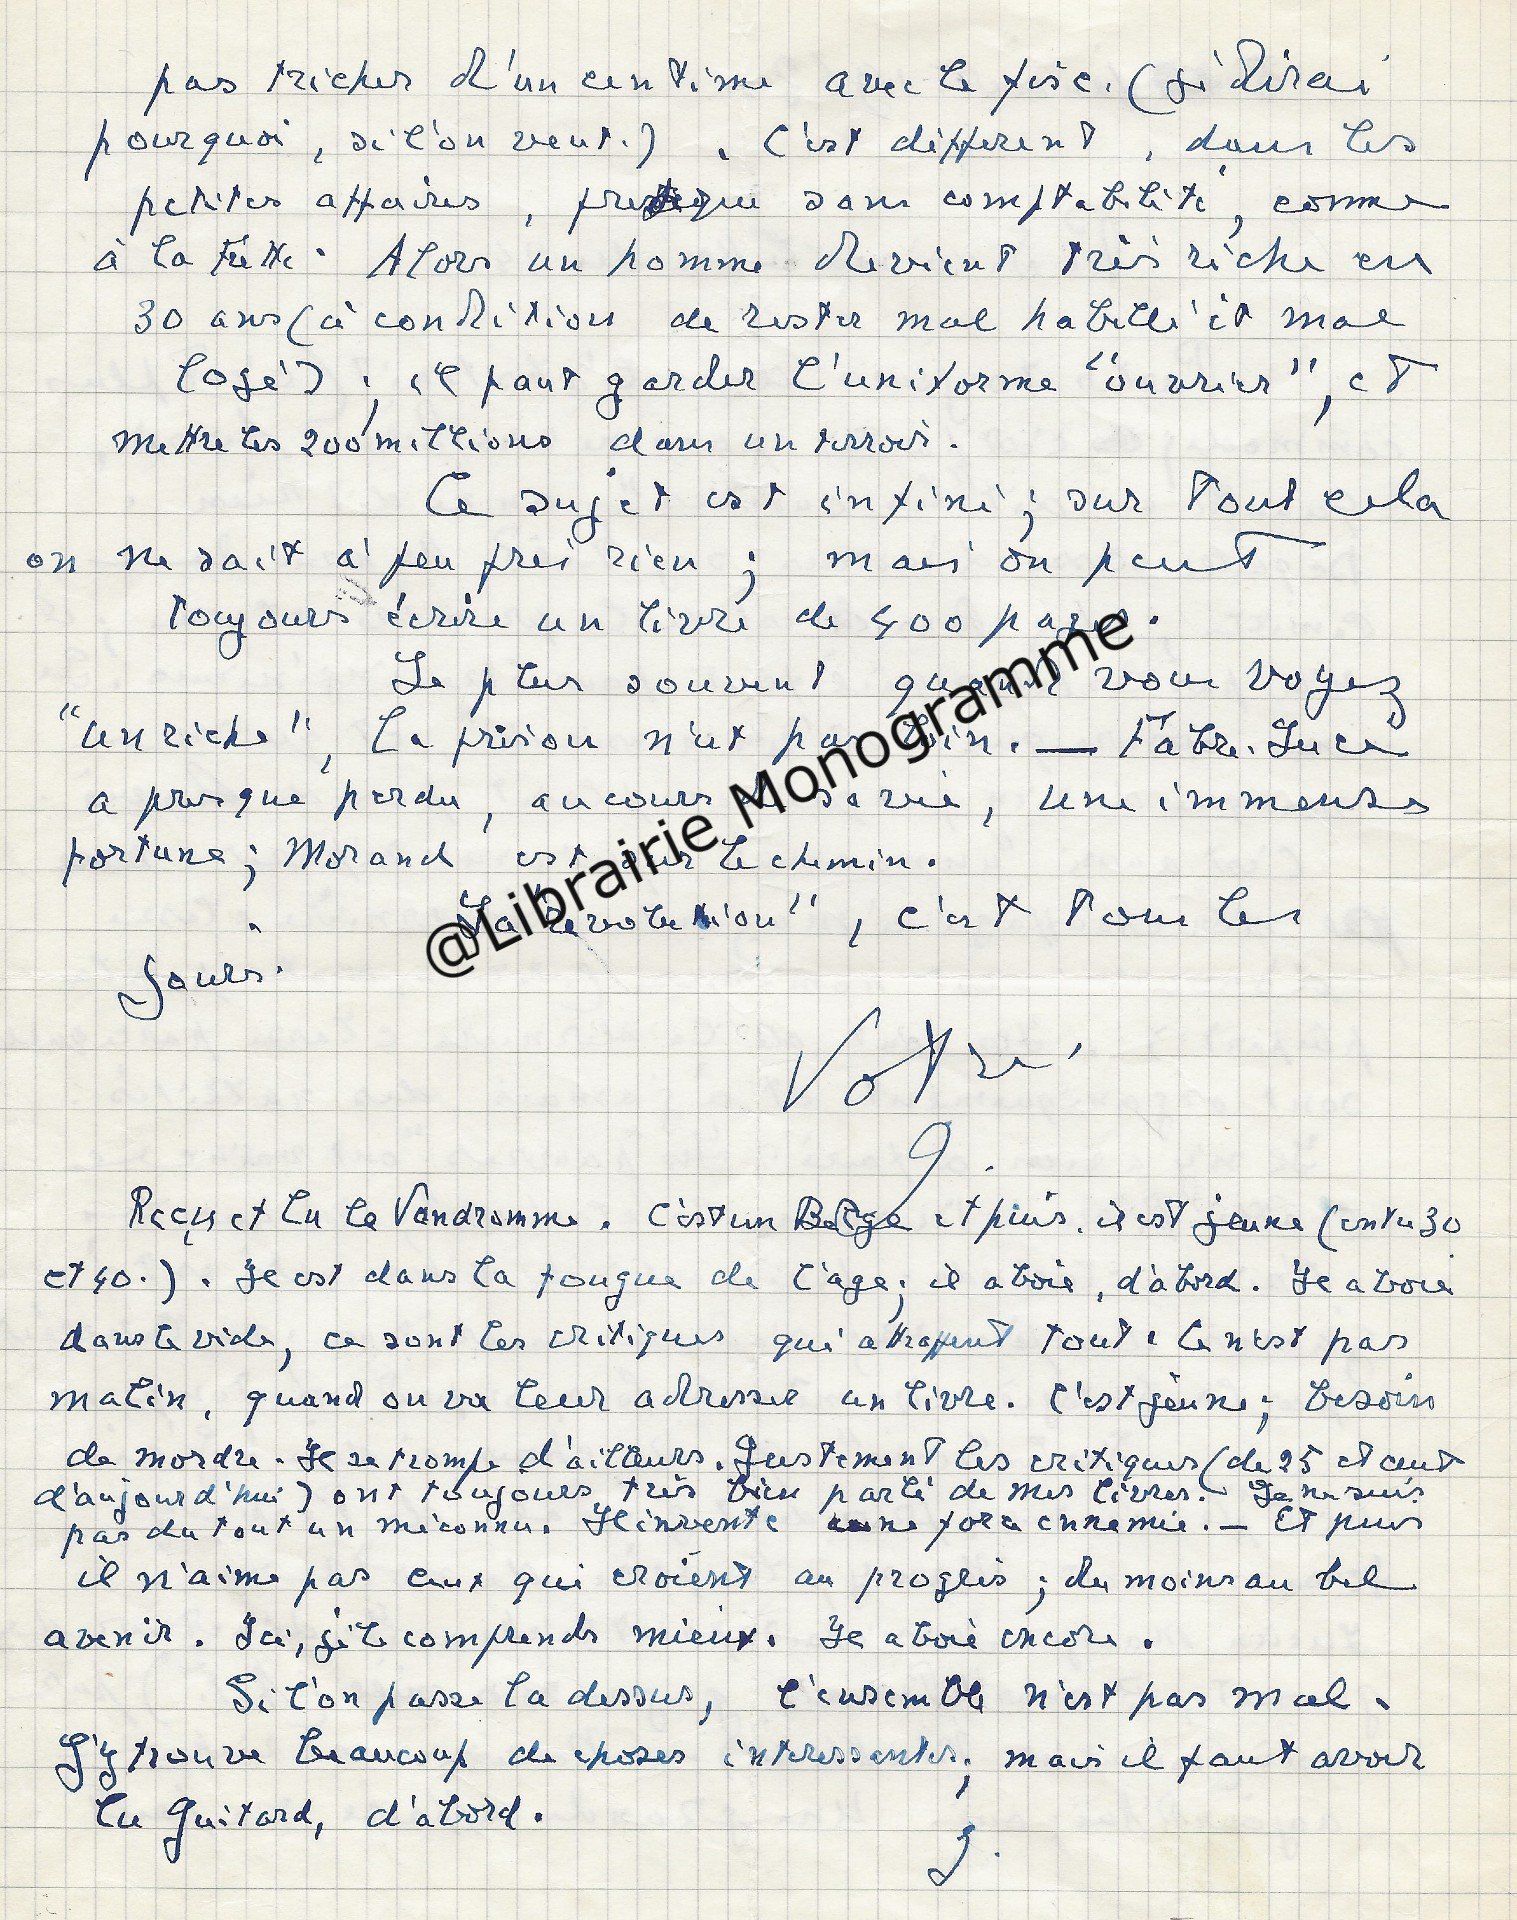 pas tricher d'un centime avec le fisc. (je dirai
pourquoi, si l'on veut.). C'est différent, dans les
petites affaires, presque sans comptabilité, comme
à la Frette. Alors un homme devient très riche en
30 ans (à condition de rester mal habillé et mal
logé); il faut garder l'uniforme "ouvrier", et
mettre les 200 millions dans un terroir.
Ce sujet est infini; sur tout cela
on ne sait à peu près rien; mais on peut
toujours écrire un livre de 400 pages.
Le plus souvent quand vous voyez
"un riche", la prison n'est pas loin. — Fabre-Luce
a presque perdu, au cours de sa vie, une immense
fortune; Morand est sur le chemin.
La "révolution", c'est tous les
jours.
Votre
J.
Reçu et lu le Vandromme. C'est un Belge et puis, il est jeune (entre 30
et 40.). Il est dans la fougue de l'age; il aboie, d'abord. Il aboie
dans le vide, ce sont les critiques qui attrapent tout. Ce n'est pas
malin, quand on va leur adresser un livre. C'est jeune; besoin
de mordre. Il se trompe d'ailleurs. Justement les critiques (de 25 et ceux
d'aujourd'hui) ont toujours très bien parlé de mes livres. Je ne suis
pas du tout un méconnu. Il invente une force ennemie. — Et puis
il n'aime pas ceux qui croient au progrès; du moins au bel
avenir. Ici, je le comprends mieux. Il aboie encore.
Si l'on passe la dessus, l'ensemble n'est pas mal.
J'y trouve beaucoup de choses interessantes; mais il faut avoir
lu Guitard, d'abord.
J.
@Librairie Monogramme